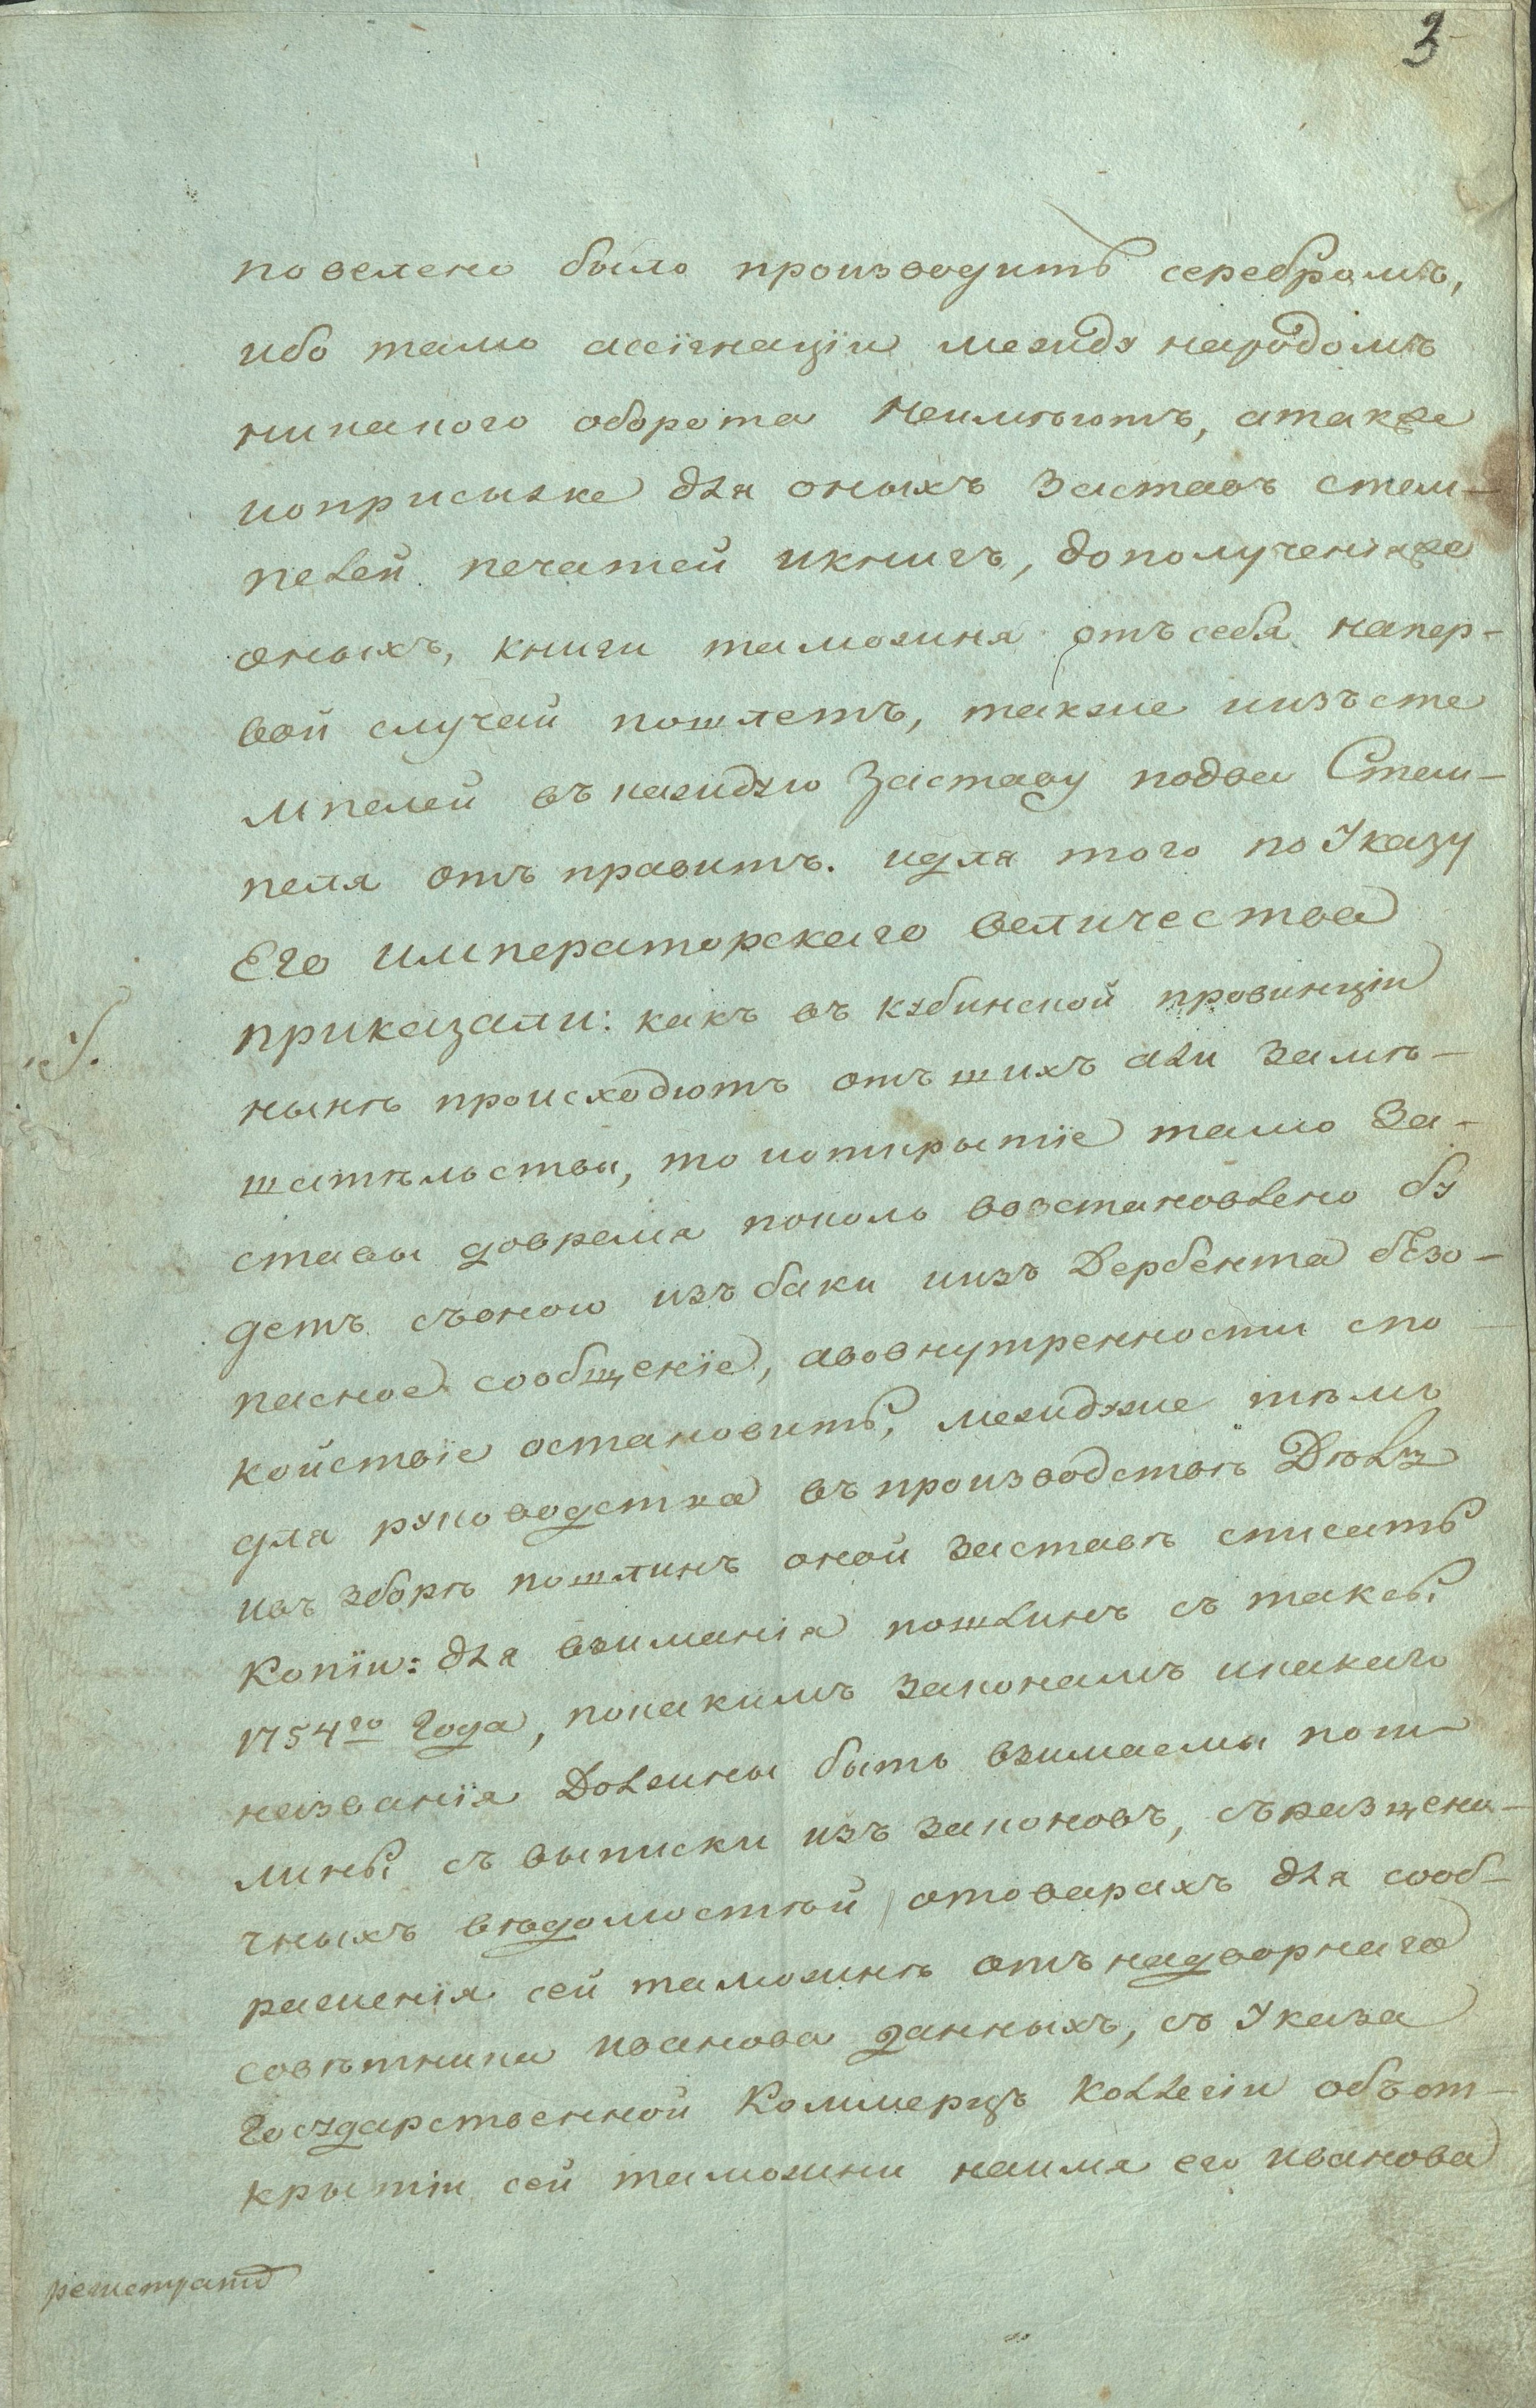 3
повелено было производить серебромъ,
ибо тамо ассігнаціи между народомъ
никакого оборота неимѣютъ, атакже
иоприсылке для оныхъ Заставъ стем-
пелей печатей икнигъ, дополученіяже
оныхъ, книги таможня отъ себя напер-
вой случай пошлетъ, также иизъ сте
мпелей въ каждую Заставу подва Стем-
пеля отъ правитъ. идля того по Указу
Его императорскаго величества
приказали: какъ въ кубинской провинціи
нынѣ происходютъ отъ шихъ али замѣ-
шательства, то иоткрытіе тамо За-
ставы довремя поколь возстановлено бу
детъ съоною изъ баки иизъ Дербента безо-
пасное сообщеніе, авовнутренности спо
койствіе остановить, междуже тѣмъ
для руководства въ производствѣ Дѣлъ
ивъ зборѣ пошлинъ оной заставѣ списать
Копіи: для взиманія пошлинъ съ таксы
1754го Года, покакимъ законамъ икакаго
названія Должны быть взимаемы пош
лины съ выписки изъ законовъ, съ разцено-
чныхъ вѣдомостей отоварахъ для сооб-
раженія сей таможнѣ отъ надворнаго
совѣтника иванова данныхъ, съ Указа
Государственной Коммерцъ Коллегіи объот-
крытіи сей таможни наимя его иванова
регистраторъ